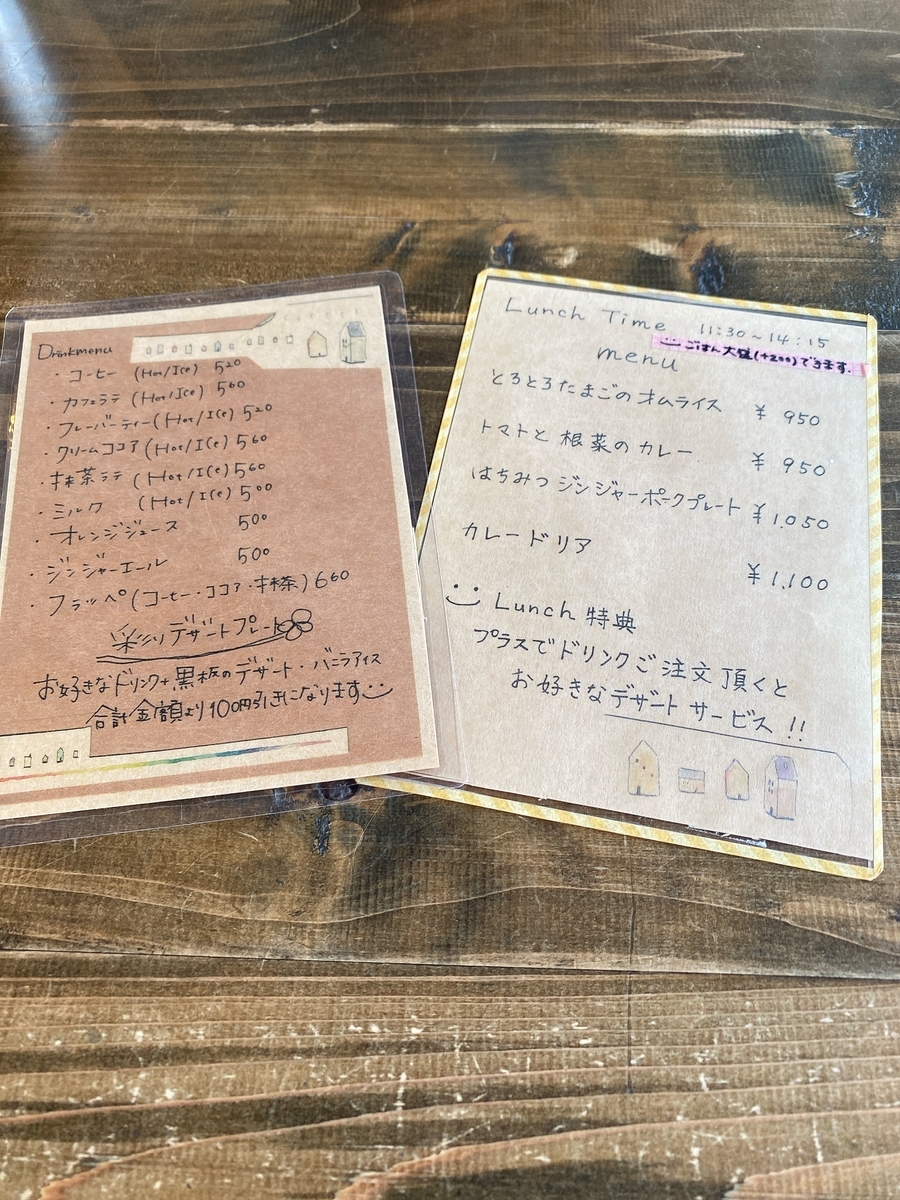 Drinkmenu
・コーヒー (Hot/Ice) 520
・カフェラテ (Hot/Ice) 560
・フレーバーティー (Hot/Ice) 520
・クリームココア (Hot/Ice) 560
・抹茶ラテ (Hot/Ice) 560
・ミルク (Hot/Ice) 500
・オレンジジュース 500
・ジンジャーエール 500
・フラッペ(コーヒー・ココア・抹茶) 660
彩りデザートプレート
お好きなドリンク+黒板のデザート・バニラアイス
合計金額より100円引きになります
Lunch Time 11:30~14:15
menu ごはん大盛(+200)できます.
とろとろたまごのオムライス ¥950
トマトと根菜のカレー ¥950
はちみつジンジャーポークプレート ¥1,050
カレードリア ¥1,100
Lunch 特典
プラスでドリンクご注文頂くと
お好きなデザートサービス!!